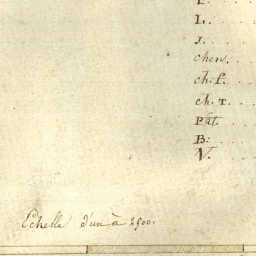 L. . . .
J. . . .
chen. . . .
ch. f. . . .
ch. T. . . .
Pât. . . .
B: . . .
V. . . .
Echelle d'un à 2500.